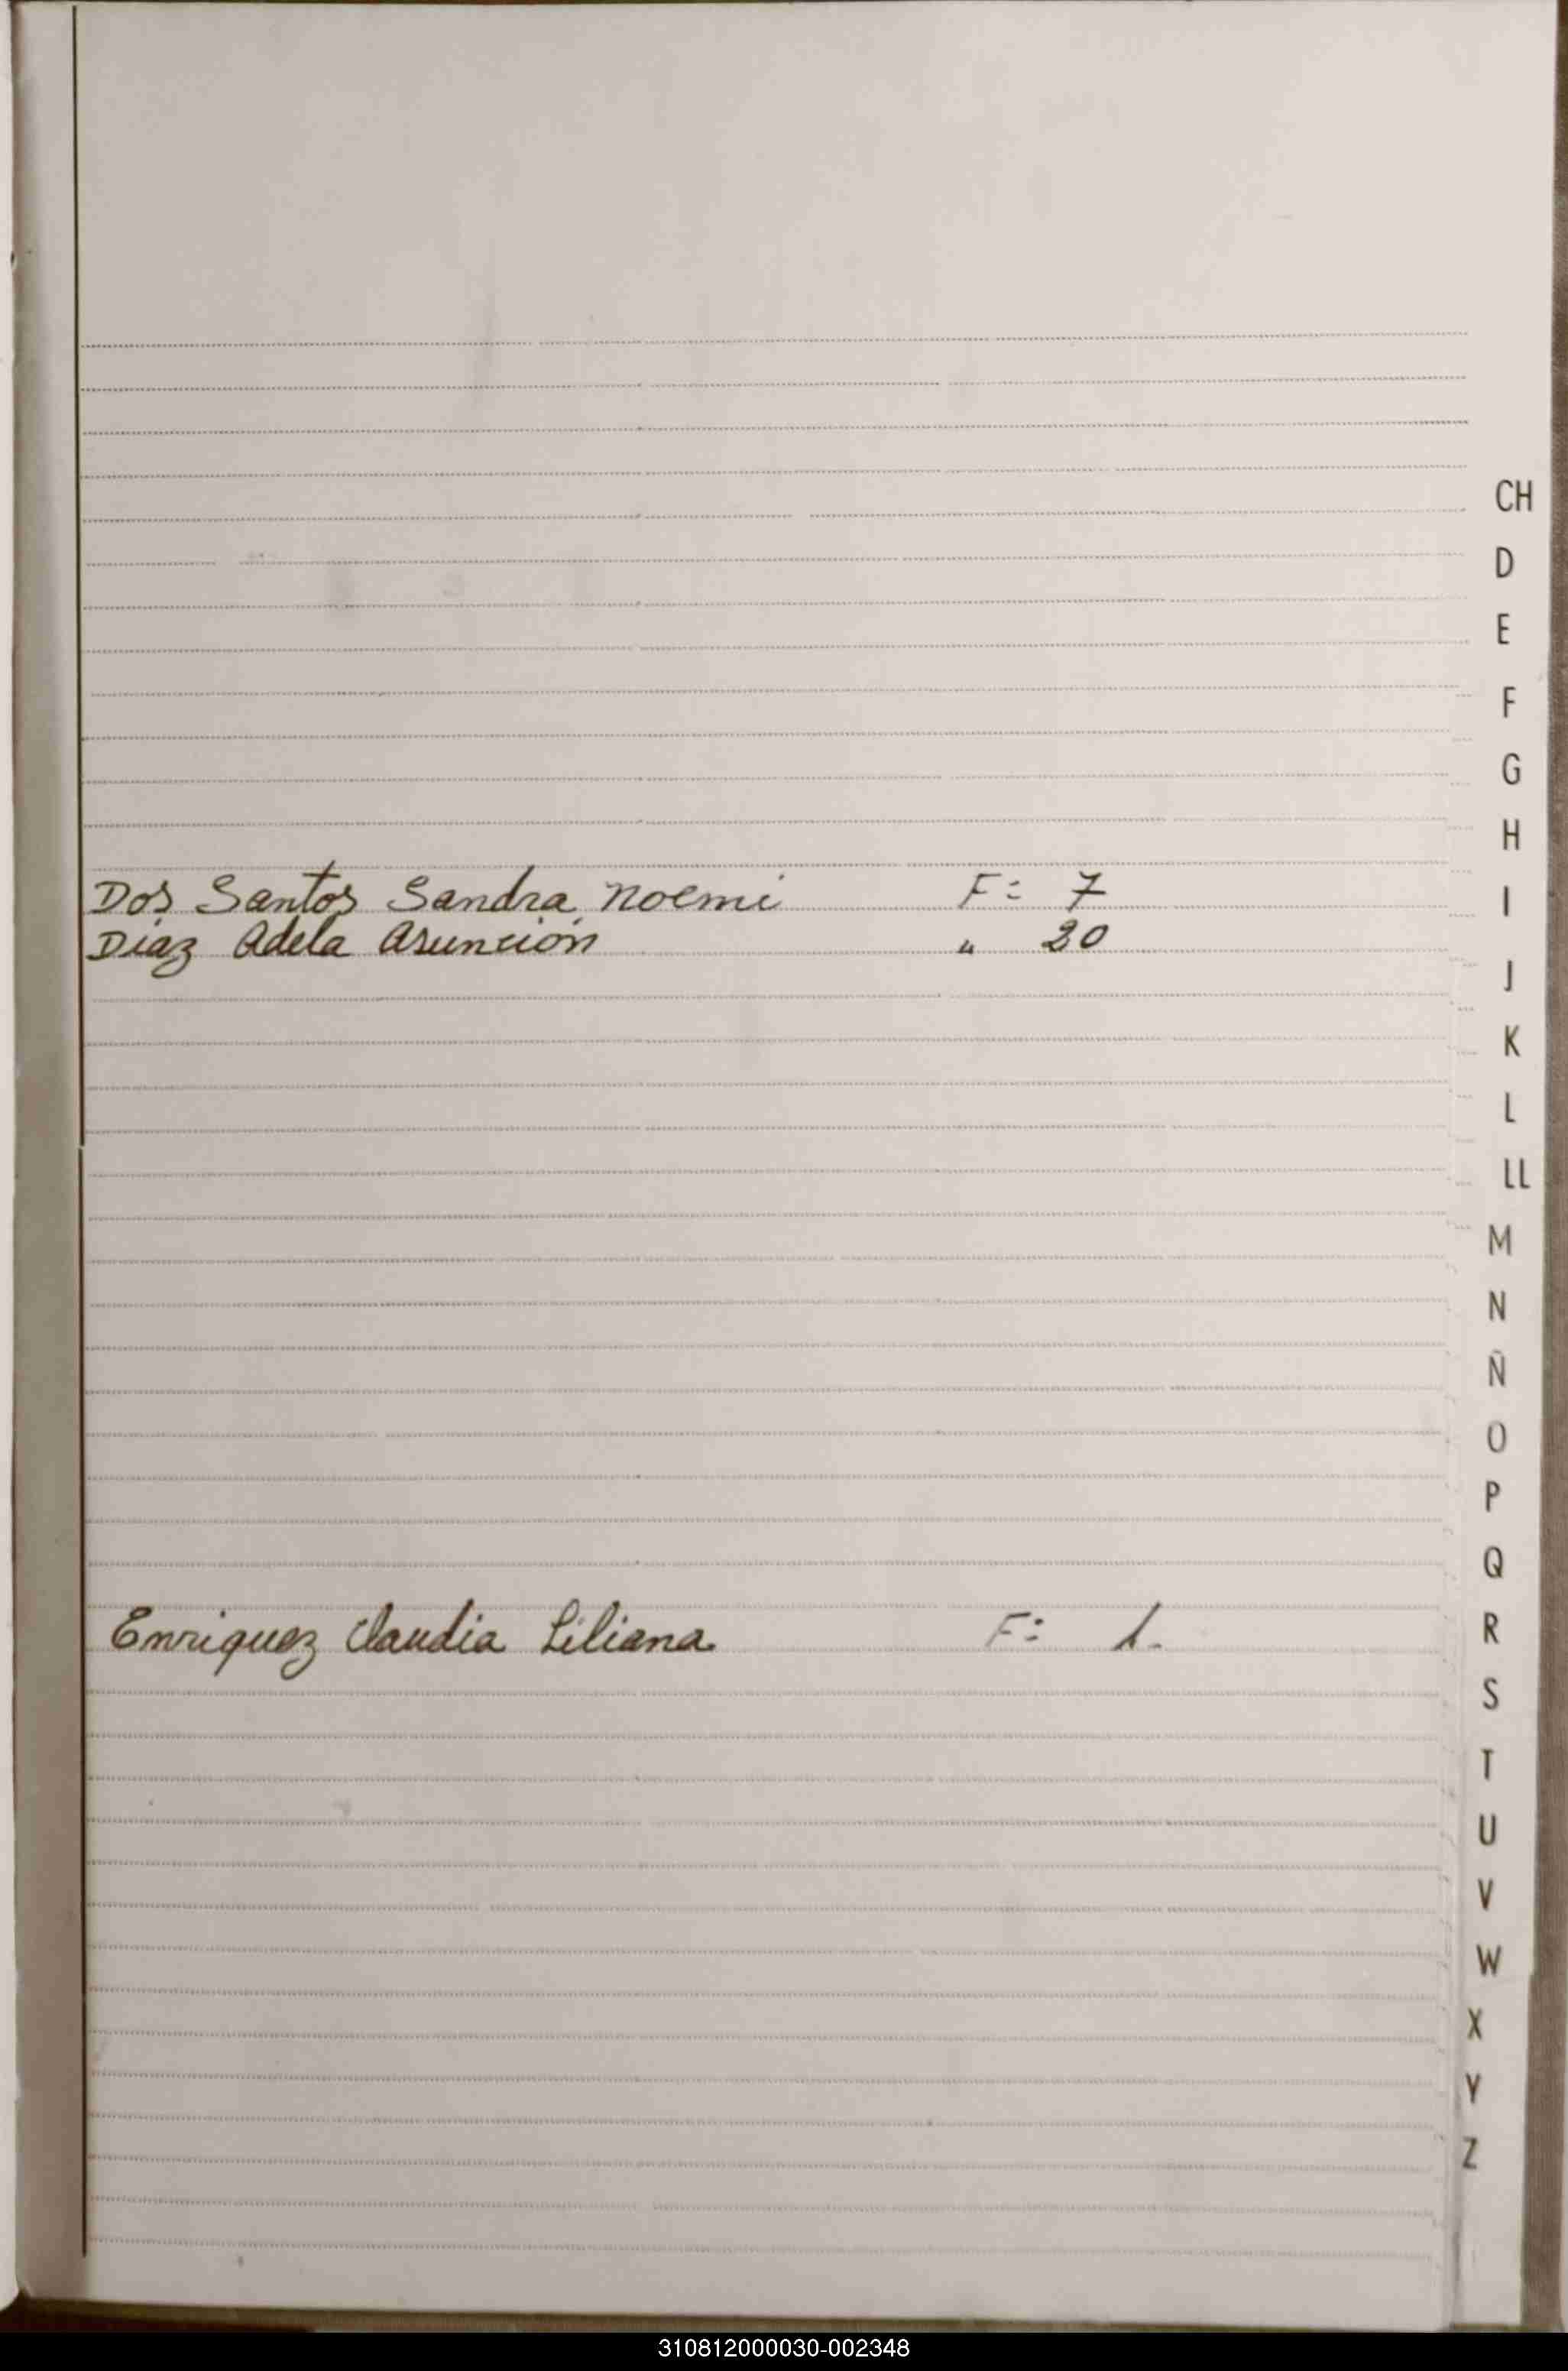 CH
D
E
F
G
H
Dos Santos Sandra Noemi F: 7
I
Díaz Adela Asunción " 20
J
K
L
LL
M
N
Ñ
O
P
Q
Enriquez Claudia Liliana F: 1.
R
S
T
U
V
W
X
Y
Z
310812000030-002348